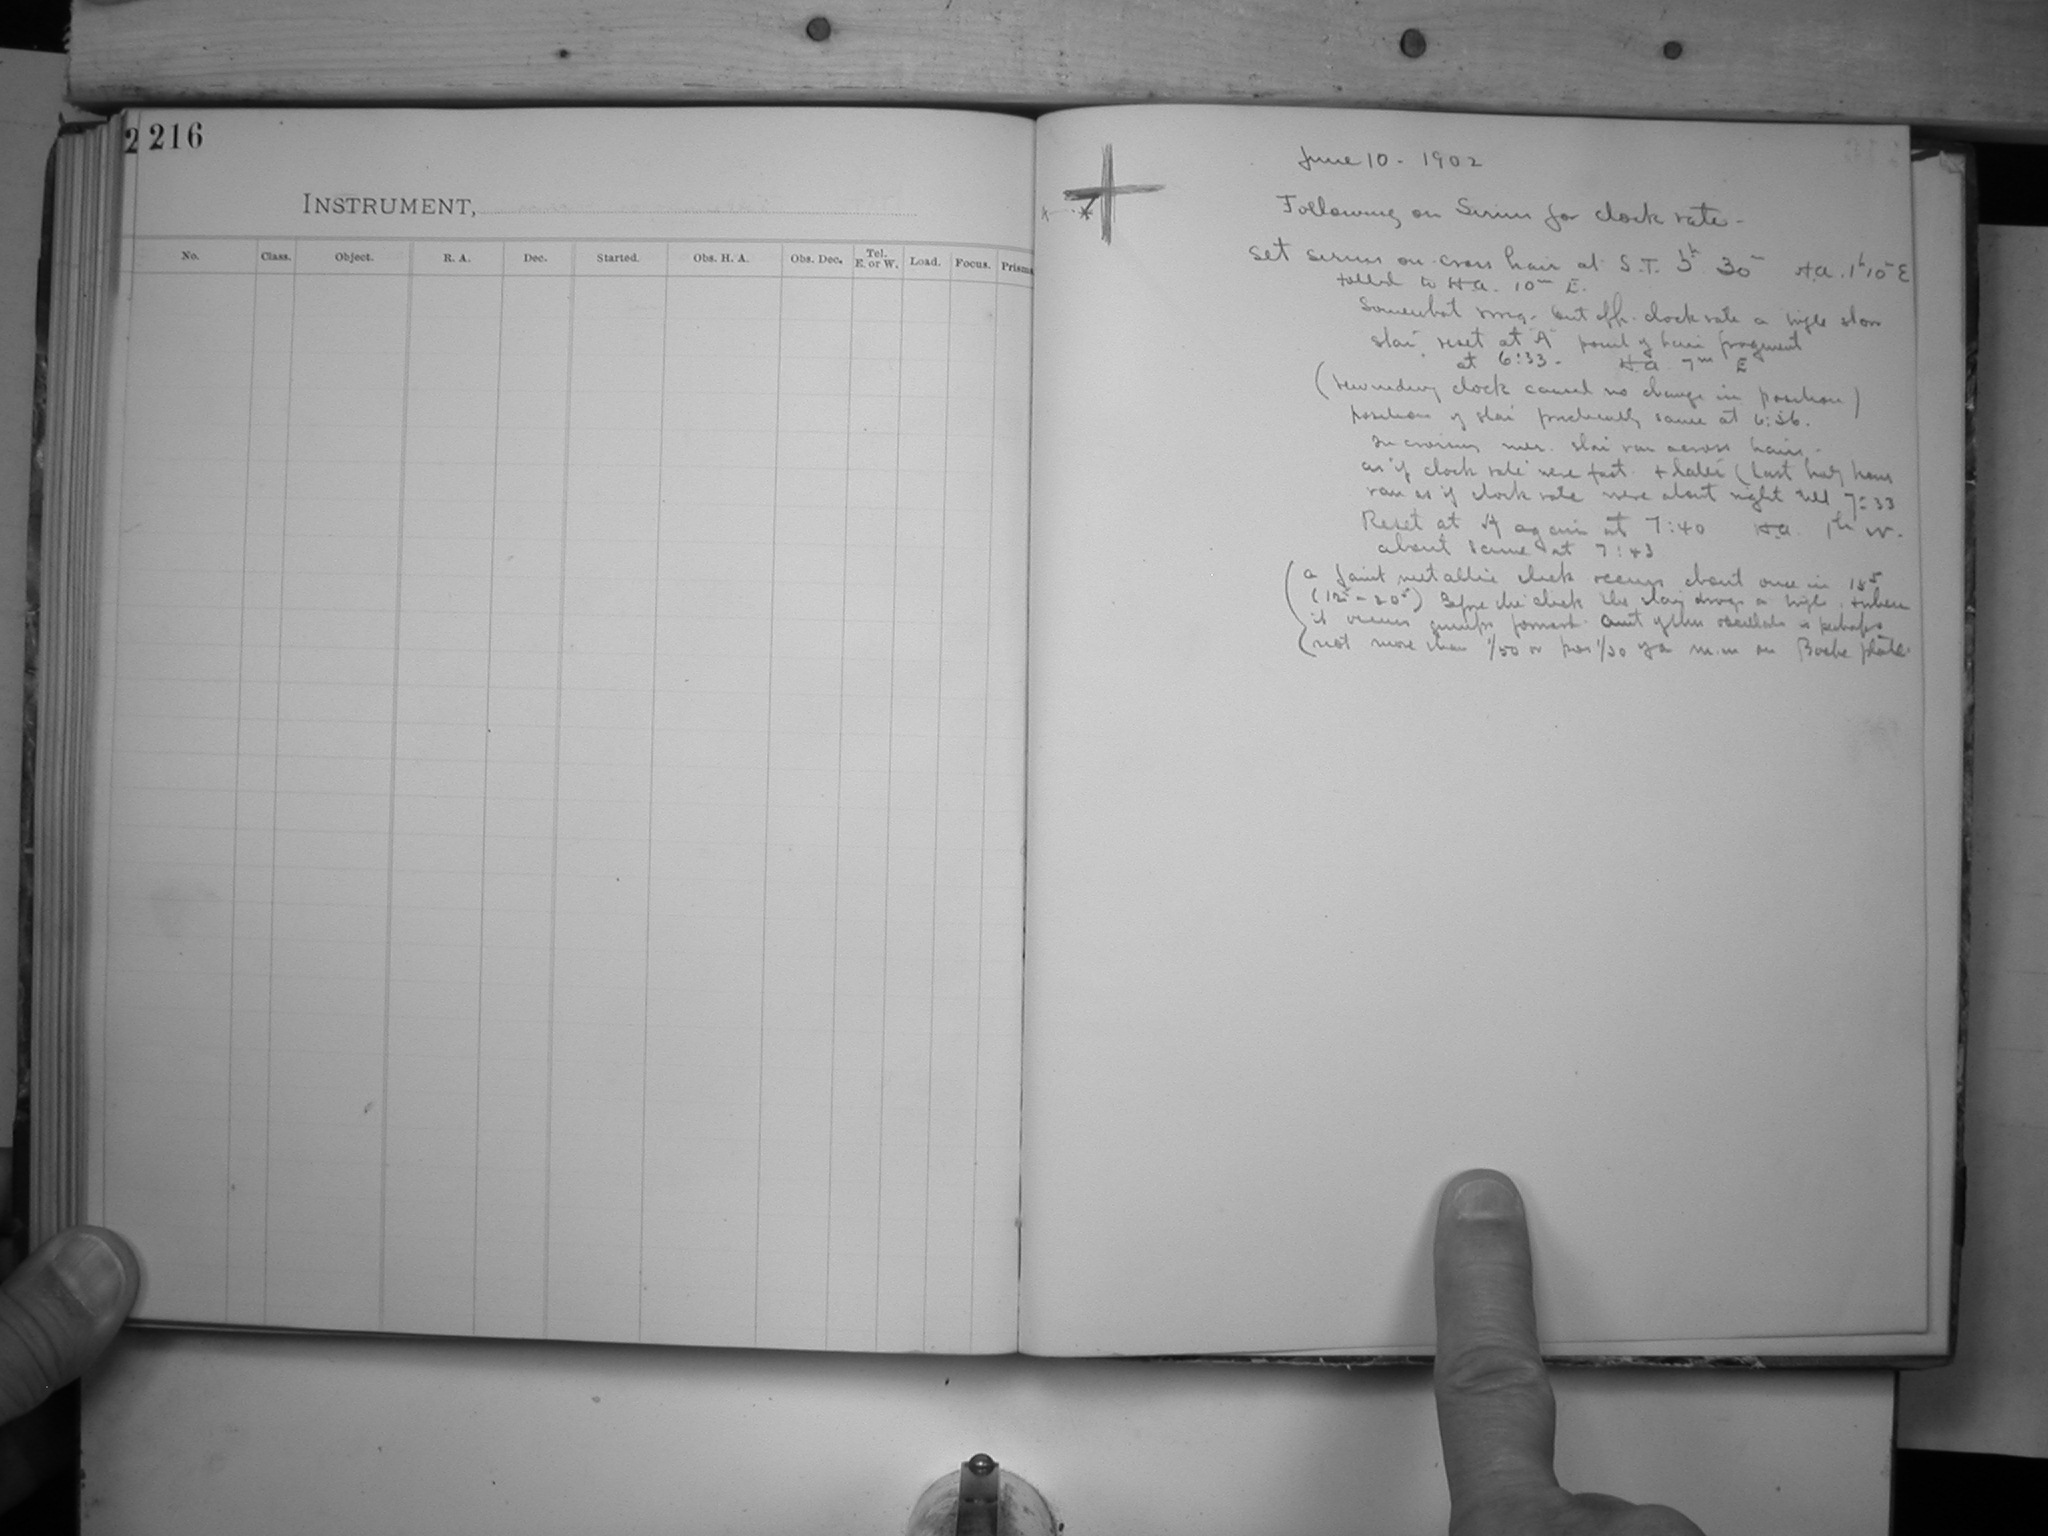 2 216
INSTRUMENT,
No. Class. Object. R. A. Dec. Started. Obs. H. A. Obs. Dec. Tel. E. or W. Load. Focus. Prisms
June 10 - 1902
Following on Sirius for clock rate -
Set sirius on cross hair at S.T. 5h 30m H.a. 1h10m E
H.a. 10m E.
Somewhat clock rate a slow
star reset at A point of hair fragment
at 6:33 - H.a. 7m E
(rewinding clock caused no change in position)
position of star practically same at 6:36.
In crossing mer. star ran across hairs -
as if clock rate were fast + later (last half hour
ran as if clock rate were about right till 7:33
Reset at A again at 7:40 H.a. 1h W.
about same at 7:43
(a faint metallic click occurs about once in 15s
(12s - 20s) Before the click the star a +when
it occurs jumps forward. is perhaps
(not more than 1/50 or 1/30 of a m.m on plate.